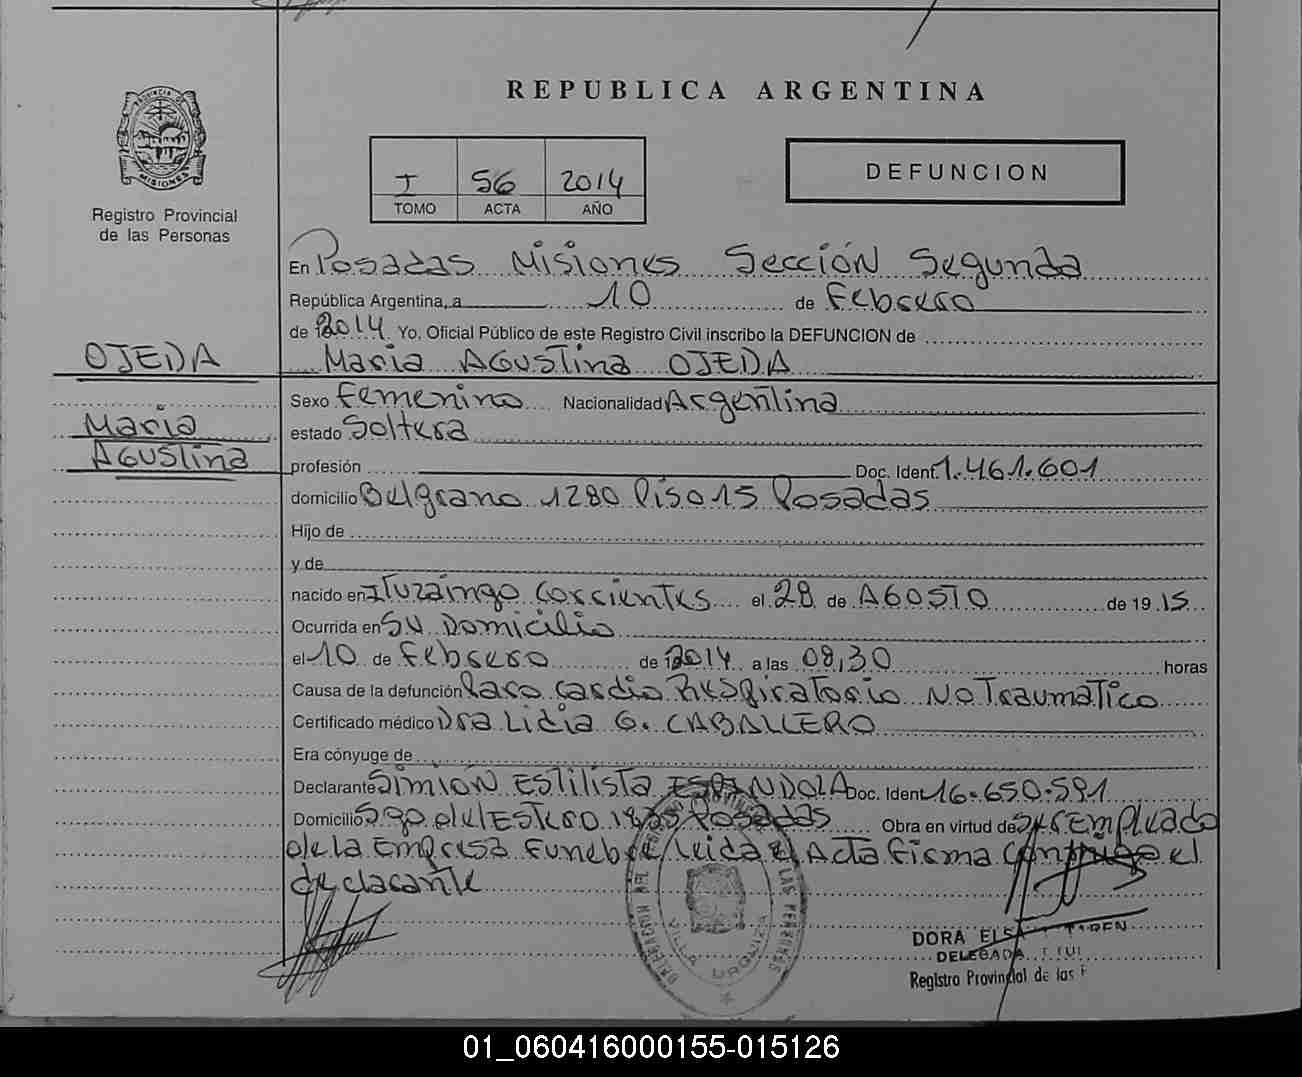 REPUBLICA ARGENTINA
PROVINCIA DE MISIONES
Registro Provincial
de las Personas
I 56 2014
TOMO ACTA AÑO
DEFUNCION
En Posadas Misiones Sección Segunda
República Argentina, a 10 de Febrero
de 2014 Yo. Oficial Público de este Registro Civil inscribo la DEFUNCION de
OJEDA
Maria AGUSTina OJEDA
Sexo Femenino Nacionalidad Argentina
Maria
estado Soltera
AGUSTina
profesión Doc. Ident. 1.461.601
domicilio Belgrano 1280 Piso 15 Posadas
Hijo de
y de
nacido en Ituzaingo Corrientes el 28 de AGOSTO de 19 15
Ocurrida en Su Domicilio
el 10 de Febrero de 2014 a las 08,30 horas
Causa de la defunción Paro Cardio Respiratorio No Traumatico
Certificado médico Dra Lidia G. CABALLERO
Era cónyuge de
Declarante Simión Estilista ESPINDOLA Doc. Ident 16.650.591
Domicilio Sgo del Estero Posadas Obra en virtud de Ser Empleado
de la Empresa Funebre, Leida el Acta Firma Conmigo el
declarante
DELEGACION DEL REGISTRO PROVINCIAL DE LAS PERSONAS
VILLA URQUIZA
DORA ELSA
DELEGADA
Registro Provincial de las
01_060416000155-015126